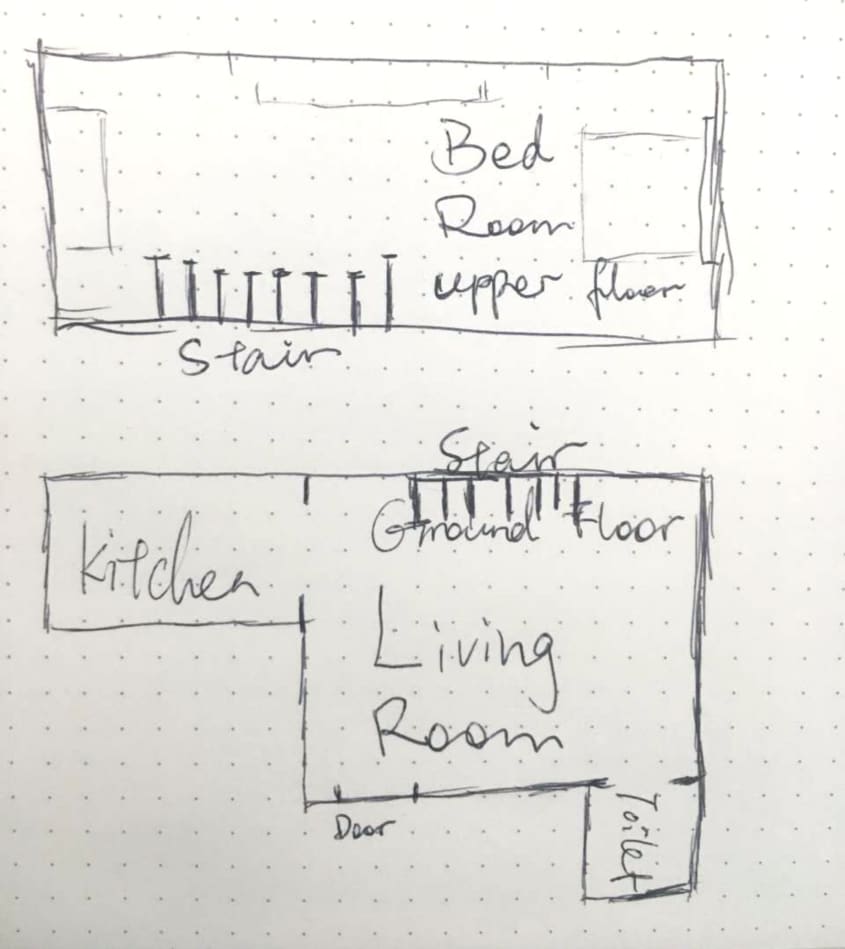 Bed
Room
upper floor
Stair
Stair
Ground Floor
Kitchen
Living
Room
Door
Toilet